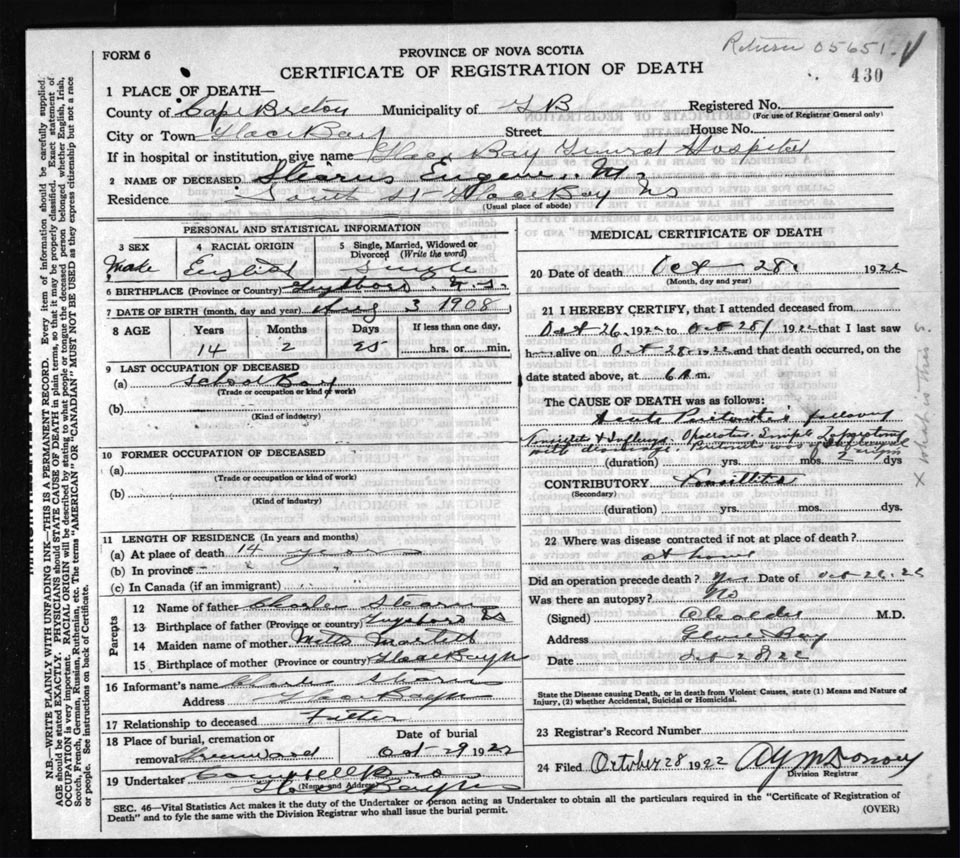 Return 05651
430
FORM 6
PROVINCE OF NOVA SCOTIA
CERTIFICATE OF REGISTRATION OF DEATH
1 PLACE OF DEATH—
County of Cape Breton Municipality of G B Registered No.
(For use of Registrar General only)
City or Town Glace Bay Street House No.
If in hospital or institution, give name Glace Bay General Hospital
2 NAME OF DECEASED Stearns Eugene M
Residence South St Glace Bay NS
(Usual place of abode)
PERSONAL AND STATISTICAL INFORMATION
3 SEX 4 RACIAL ORIGIN 5 Single, Married, Widowed or Divorced (Write the word)
Male English Single
6 BIRTHPLACE (Province or Country)
7 DATE OF BIRTH (month, day and year) Aug 3 1908
8 AGE Years Months Days If less than one day,
14 2 25 hrs. or min.
9 LAST OCCUPATION OF DECEASED
(a) School Boy
(Trade or occupation and kind of work)
(b)
(Kind of industry)
10 FORMER OCCUPATION OF DECEASED
(a)
(Trade or occupation or kind of work)
(b)
(Kind of industry)
11 LENGTH OF RESIDENCE (In years and months)
(a) At place of death 14 years
(b) In province
(c) In Canada (if an immigrant)
Parents
12 Name of father Charles Stearns
13 Birthplace of father (Province or country) NS
14 Maiden name of mother
15 Birthplace of mother (Province or country) Glace Bay
16 Informant's name Charles Stearns
Address Glace Bay NS
17 Relationship to deceased Father
18 Place of burial, cremation or removal Greenwood
Date of burial Oct 29 1922
19 Undertaker Campbell Bros
(Name and Address) Glace Bay NS
MEDICAL CERTIFICATE OF DEATH
20 Date of death Oct 28 1922
(Month, day and year)
21 I HEREBY CERTIFY, that I attended deceased from
Oct 26 1922 to Oct 28 1922 that I last saw
h alive on Oct 28 1922 and that death occurred, on the
date stated above, at 6 A m.
The CAUSE OF DEATH was as follows:
Acute Peritonitis following
Tonsillitis & Influenza Operation Simple
with drainage.
(duration) yrs. mos. 2 dys
CONTRIBUTORY Tonsillitis
(Secondary)
(duration) yrs. mos. dys.
22 Where was disease contracted if not at place of death?
at home
Did an operation precede death? Yes Date of Oct 26.22
Was there an autopsy? No
(Signed) M.D.
Address Glace Bay
Date Oct 28 22
State the Disease causing Death, or in death from Violent Causes, state (1) Means and Nature of
Injury, (2) whether Accidental, Suicidal or Homicidal.
23 Registrar's Record Number
24 Filed October 28 1922
Division Registrar
SEC. 46—Vital Statistics Act makes it the duty of the Undertaker or person acting as Undertaker to obtain all the particulars required in the "Certificate of Registration of
Death" and to fyle the same with the Division Registrar who shall issue the burial permit. (OVER)
N.B.—WRITE PLAINLY WITH UNFADING INK—THIS IS A PERMANENT RECORD. Every item of information should be carefully supplied.
AGE should be stated EXACTLY. PHYSICIANS should STATE CAUSE OF DEATH in plain terms, so that it may be properly classified. Exact statement of
OCCUPATION is very important. RACIAL ORIGIN will be described by stating to what people or tongue the deceased person belonged, whether English, Irish,
Scotch, French, German, Russian, Ruthenian, etc. The terms "AMERICAN" OR "CANADIAN" MUST NOT BE USED as they express citizenship but not a race
or people. See instructions on back of Certificate.